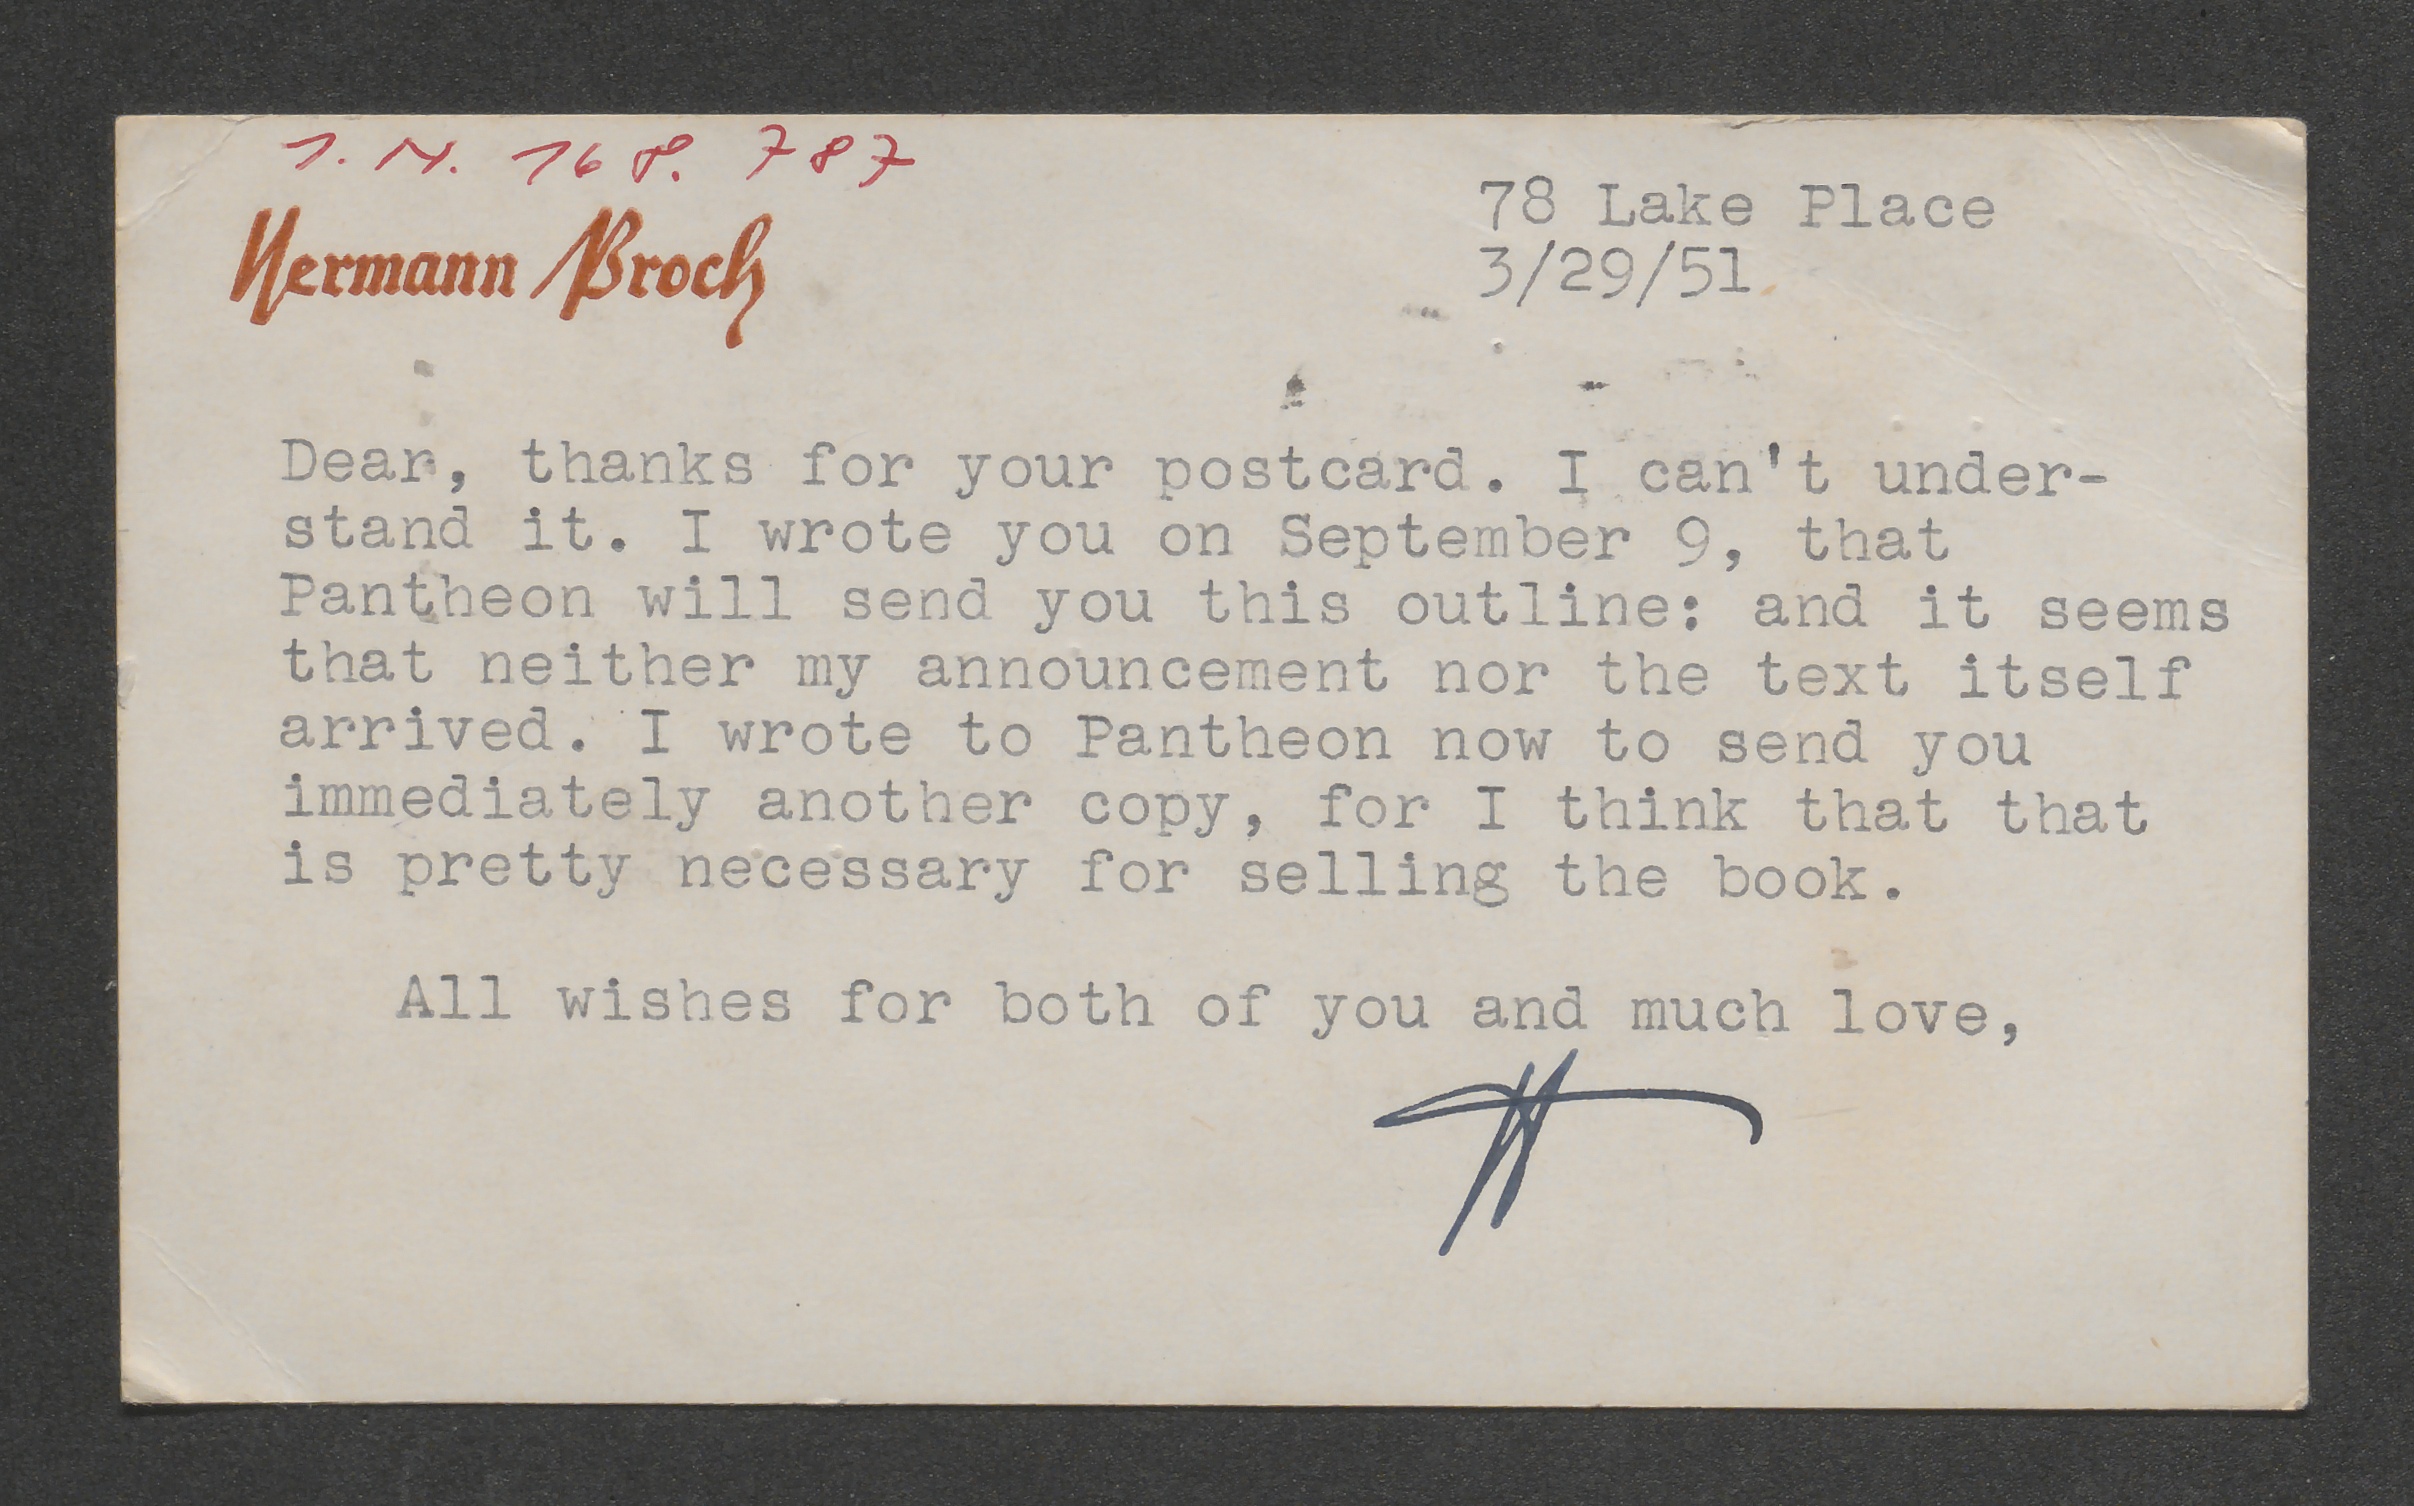 J. N. 168. 787
Hermann Broch
78 Lake Place
3/29/51
Dear, thanks for your postcard. I can't under-
stand it. I wrote you on September 9, that
Pantheon will send you this outline: and it seems
that neither my announcement nor the text itself
arrived. I wrote to Pantheon now to send you
immediately another copy, for I think that that
is pretty necessary for selling the book.
All wishes for both of you and much love,
H